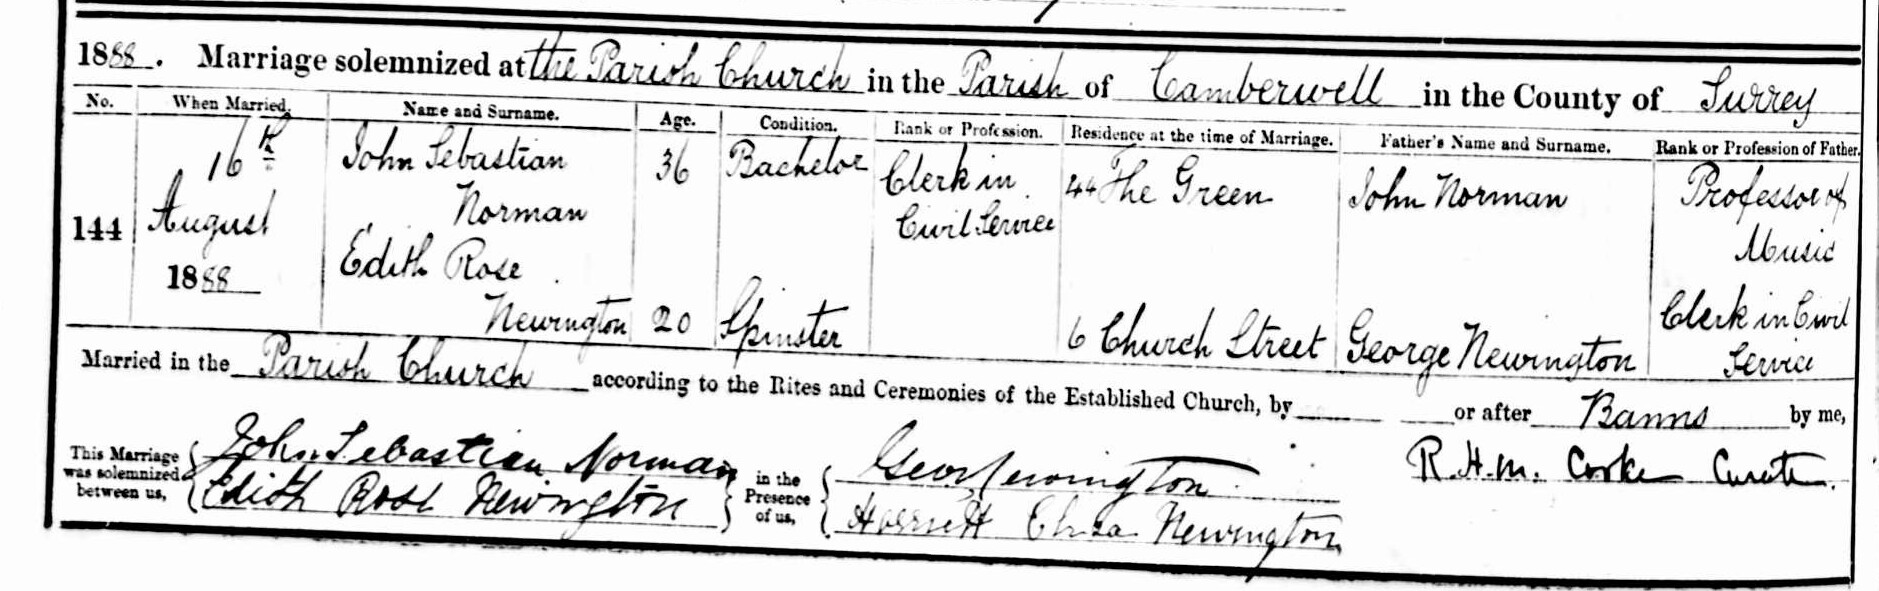 1888. Marriage solemnized at the Parish Church in the Parish of Camberwell in the County of Surrey
No. When Married. Name and Surname. Age. Condition. Rank or Profession. Residence at the time of Marriage. Father's Name and Surname. Rank or Profession of Father.
144
16th
August
1888
John Sebastian
Norman
36
Bachelor
Clerk in
Civil Service
44 The Green
John Norman
Professor of
Music
Edith Rose
Newington
20
Spinster
6 Church Street
George Newington
Clerk in Civil
Service
Married in the Parish Church according to the Rites and Ceremonies of the Established Church, by or after Banns by me,
This Marriage
was solemnized
between us,
John Sebastian Norman
Edith Rose Newington
in the
Presence
of us,
Geo Newington
Harriett Eliza Newington
R. H. M. Cooke Curate.